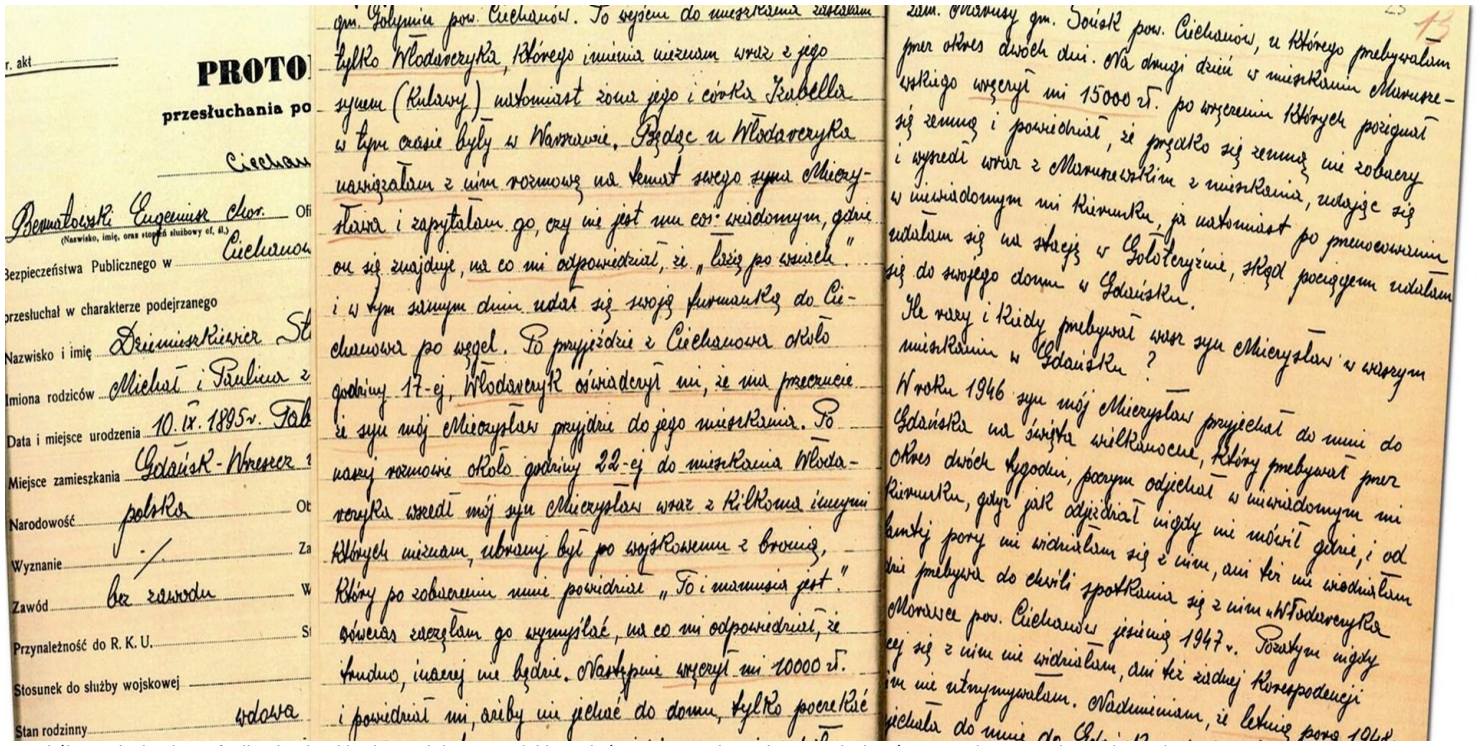 r. akt
PROTO
przesłuchania po
Ciechan
Eugeniusz chor. Ofi
(Nazwisko, imię, oraz stopień służbowy of. śl.)
Bezpieczeństwa Publicznego w Ciechanow
przesłuchał w charakterze podejrzanego
Nazwisko i imię Dziemieszkiewicz St
Imiona rodziców Michał i Paulina z
Data i miejsce urodzenia 10.IX.1895r.
Miejsce zamieszkania Gdańsk-Wrzeszcz
Narodowość polska Ob
Wyznanie ./ Za
Zawód bez zawodu W
Przynależność do R. K. U. St
Stosunek do służby wojskowej
Stan rodzinny wdowa
gm. Gołymin pow. Ciechanów. Po wejściu do mieszkania zastałam
tylko Włodarczyka, którego imienia nieznam wraz z jego
synem (Kulawy) natomiast żona jego i córka Izabella
w tym czasie były w Warszawie. Będąc u Włodarczyka
nawiązałam z nim rozmowę na temat swego syna Mieczy-
sława i zapytałam go, czy nie jest mu coś wiadomym, gdzie
on się znajduje, na co mi odpowiedział, że „łażą po wsiach."
i w tym samym dniu udał się swoją furmanką do Cie-
chanowa po węgel. Po przyjeździe z Ciechanowa około
godziny 17-ej, Włodarczyk oświadczył mi, że ma przeczucie
że syn mój Mieczysław przyjdzie do jego mieszkania. Po
naszy rozmowie około godziny 22-ej do mieszkania Włoda-
rczyka wszedł mój syn Mieczysław wraz z kilkoma innymi
których nieznam, ubrany był po wojskowemu z bronią,
który po zobaczeniu mnie powiedział „To i mamusia jest".
wówczas zaczęłam go wymyślać, na co mi odpowiedział, że
trudno, inaczej nie będzie. Następnie wręczył mi 10000 zł.
i powiedział mi, ażeby nie jechać do domu, tylko poczekać
23
13
zam. Marusy gm. Sońsk pow. Ciechanów, u którego przebywałam
przez okres dwóch dni. Na drugi dzień w mieszkaniu Marusze-
wskiego wręczył mi 15000 zł. po wręczeniu których pożegnał
się zemną i powiedział, że prędko się zemną nie zobaczy
i wyszedł wraz z Maruszewskim z mieszkania, udając się
w niewiadomym mi kierunku, ja natomiast po przenocowaniu
udałam się na stację w Gołotczyźnie, skąd pociągiem udałam
się do swojego domu w Gdańsku.
Ile razy i kiedy przebywał wasz syn Mieczysław w waszym
mieszkaniu w Gdańsku ?
W roku 1946 syn mój Mieczysław przyjechał do mnie do
Gdańska na święta wielkanocne, który przebywał przez
okres dwóch tygodni, poczym odjechał w niewiadomym mi
kierunku, gdyż jak odjeżdżał nigdy nie mówił gdzie, i od
tamtej pory nie widziałam się z nim, ani też nie wiedziałam
dzie przebywa do chwili spotkania się z nim u Włodarczyka
Morawce pow. Ciechanów jesienią 1947 r. Pozatym nigdy
cej się z nim nie widziałam, ani też żadnej korespodencji
im nie utrzymywałam. Nadmieniam, że letnią porą 1948
jechała do mnie do